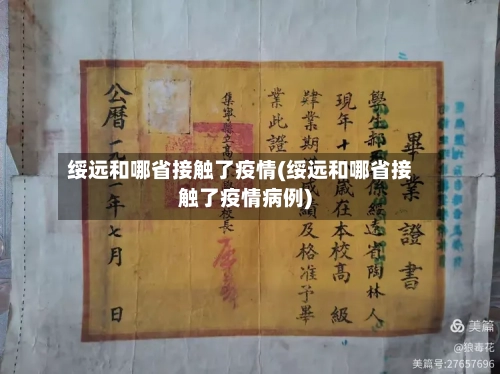 畢業證書
學生郝
係綏遠省陶林人
現年十
歲在本校高
級
肄業期
成績及格准予畢
業此證
集寧縣立高
校長
公曆一九
一年七月
日
绥远和哪省接触了疫情(绥远和哪省接
触了疫情病例)
美篇
@狼毒花
美篇号:27657696